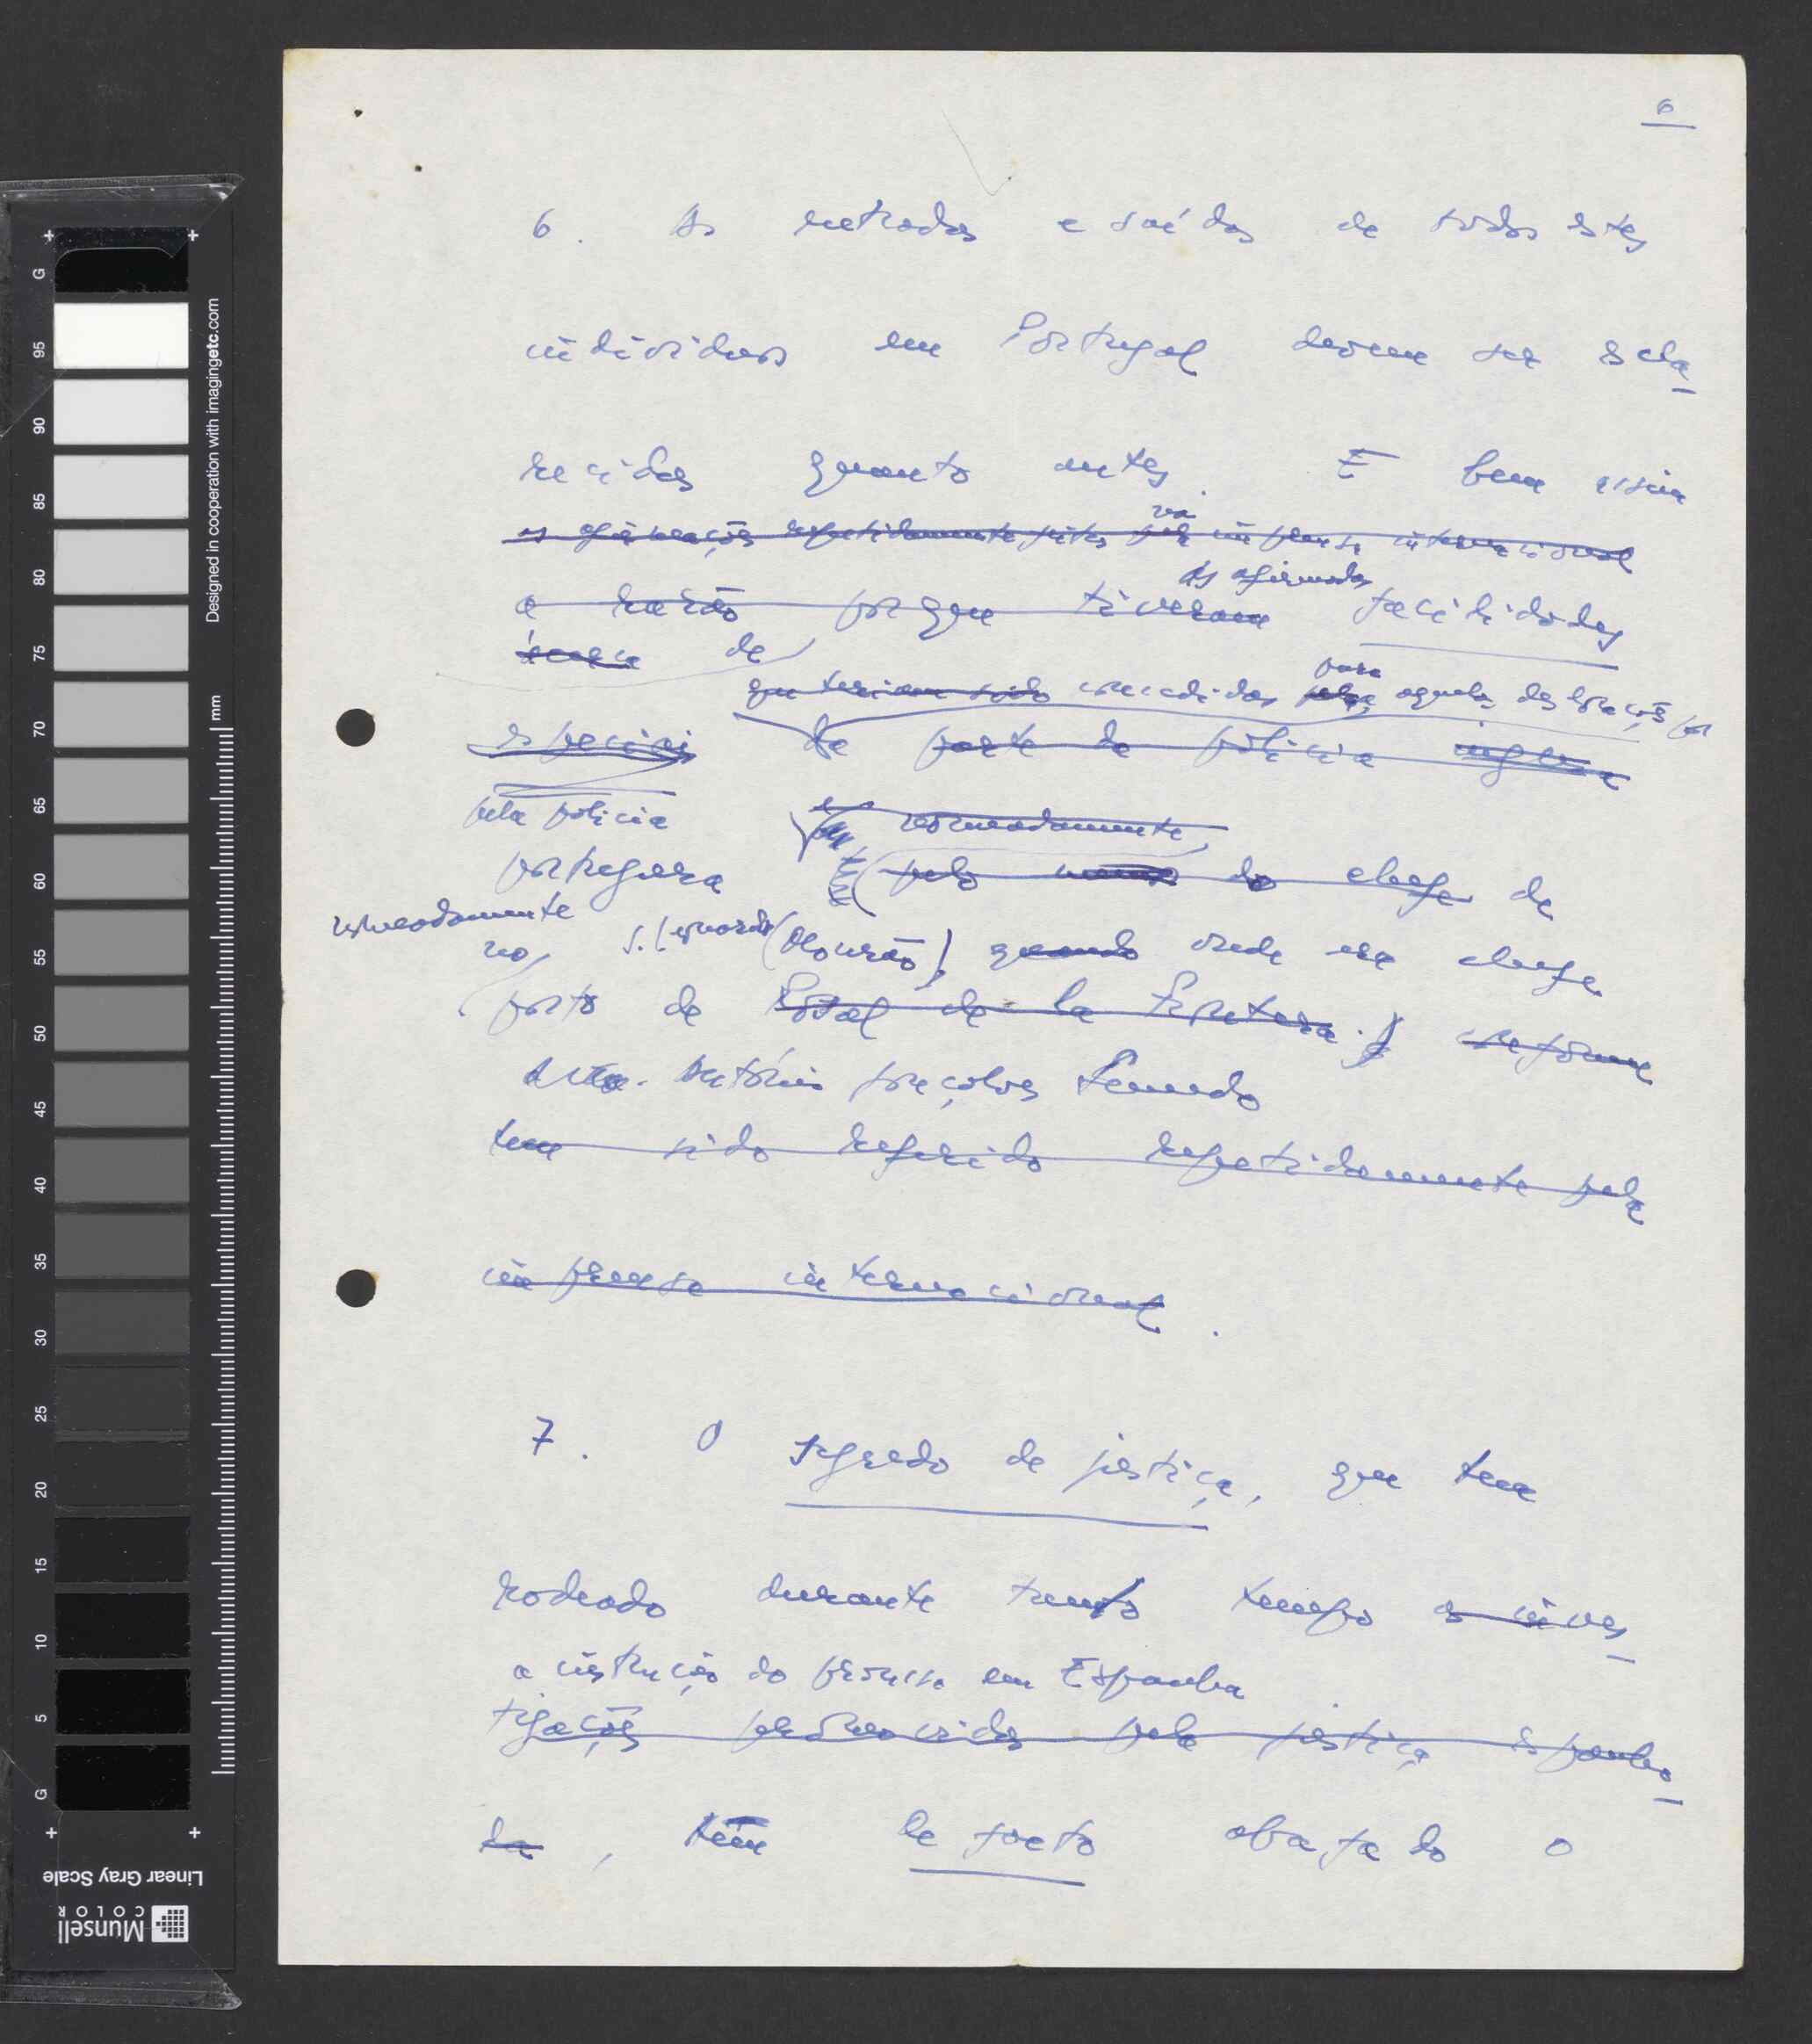 6
6. As entradas e saídas de todos estes
indivíduos em Portugal devem ser escla-
recidas quanto antes. E bem assim
as afirmações repetidamente feitas pela na imprensa internacional
a razão porque tiveram as afirmadas facilidades
de
que teriam sido concedidas pela para aquelas deslocações por
especiais de parte da polícia
pela polícia nomeadamente,
portuguesa pelo do chefe de
nomeadamente
no S. Leonardo (Mourão), quando onde era chefe
posto de Rosal de la Frontera. conforme
António Gonçalves Semedo
tem sido referido repetidamente pela
imprensa internacional.
7. O segredo de justiça, que tem
rodeado durante tanto tempo as inves-
a instrução do processo em Espanha
tigações promovidas pela justiça espanho-
la, tem de facto abafado o
G 95 90 85 80 75 70 65 60 55 50 45 40 35 30 25 20 15 10 5 G
mm
Designed in cooperation with imagingetc.com
Linear Gray Scale
Munsell
COLOR